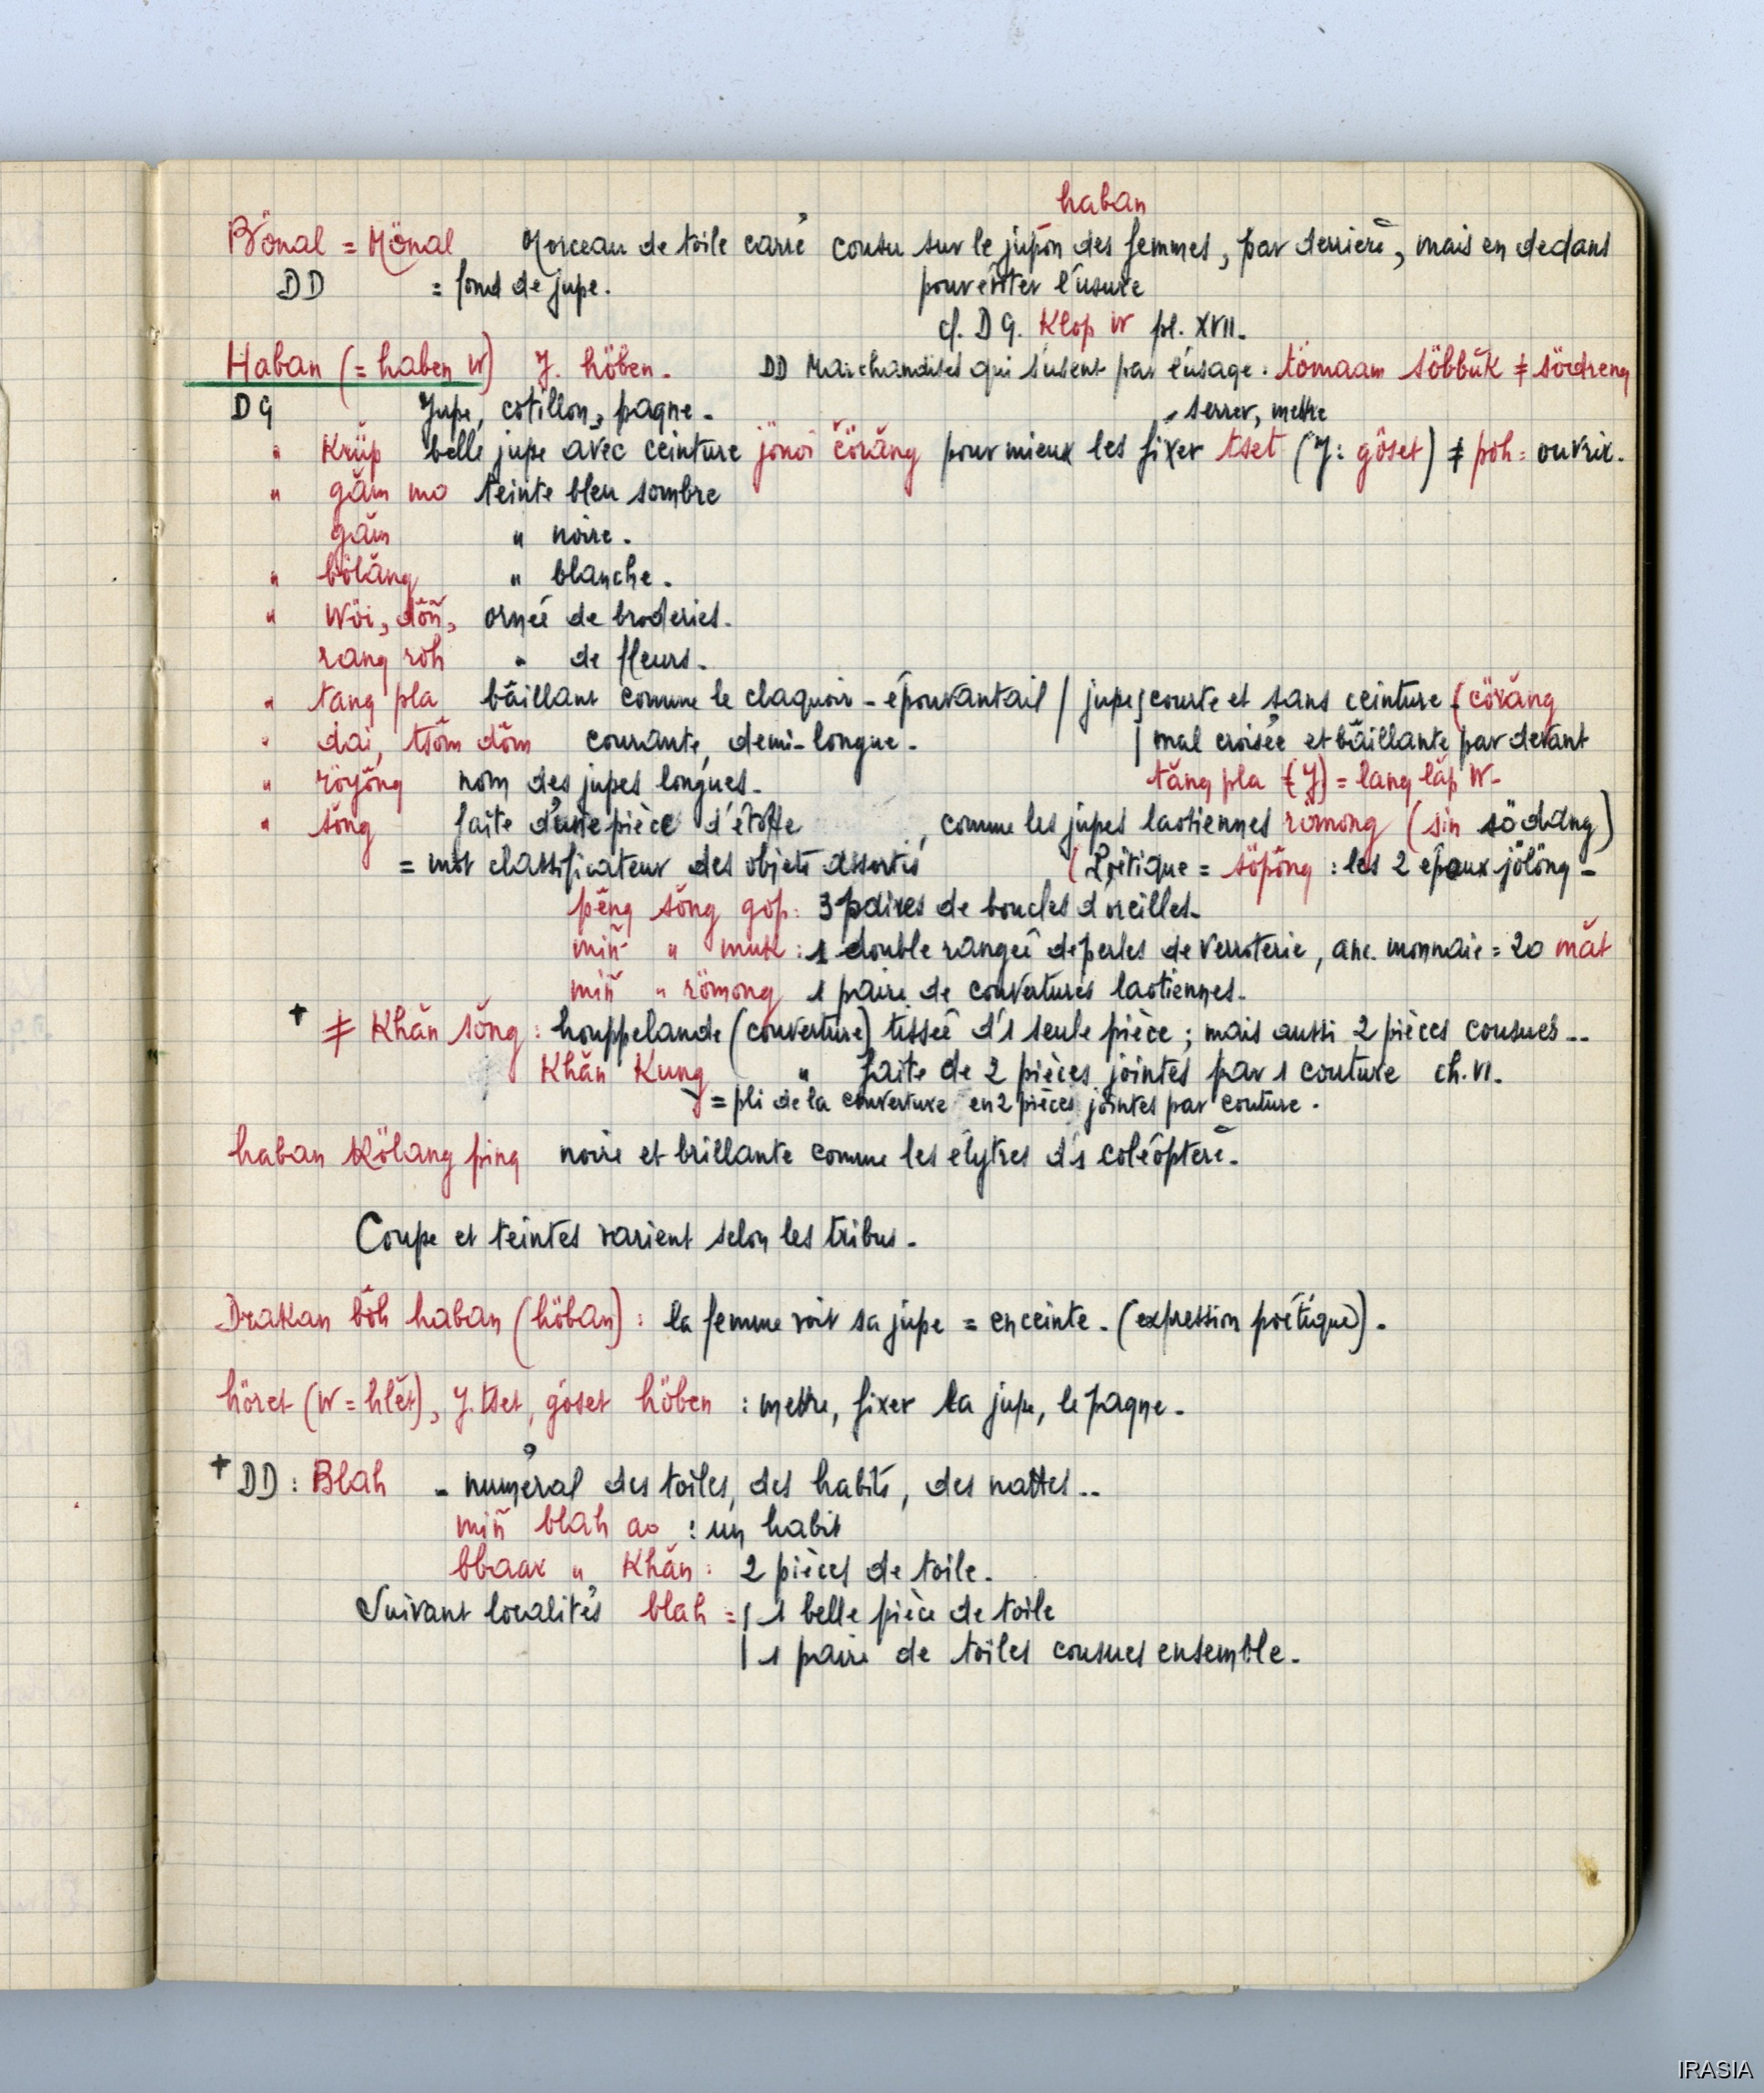 haban
Bönal = Mönal Morceau de toile carré cousu sur le jupon des femmes, par derrière, mais en dedans
DD = fond de jupe. pour éviter l'usure
cf. DG. Klop W pl. XVII.
Haban (= haben W) J. höben. DD Marchandises qui s'usent par l'usage : tömaam söbbŭk ≠ sördreng
DG Jupe, cotillon, pagne. serrer, mettre
" Krŭp belle jupe avec ceinture jönoi čörăng pour mieux les fixer tset (J: göset) ≠ pöh = ouvrir.
" găm mo teinte bleu sombre
găm " noire.
" bölăng " blanche.
" Wöi, dŏñ, ornée de broderies.
rang röh " de fleurs.
" tang pla bâillant comme le claquoir-épouvantail / jupe courte et sans ceinture (cörăng
" dai, tsŏm dŏm courante, demi-longue. | mal croisée et bâillante par devant
" röyŏng nom des jupes longues. tăng pla (J) = lang lăp W-
" sŏng faite d'une pièce d'étoffe, comme les jupes laotiennes römong (sin södăng)
= mot classificateur des objets assortis (Poétique = söpŏng : les 2 époux jölöng -
pĕng sŏng gop : 3 paires de boucles d'oreilles.
miñ " muk : 1 double rangée de perles de verroterie, anc. monnaie = 20 măt
miñ " römong 1 paire de couvertures laotiennes.
+ ≠ Khăn sŏng : houppelande (couverture) tissée d'1 seule pièce ; mais aussi 2 pièces cousues..
Khăn Kung " faite de 2 pièces jointes par 1 couture ch. VI.
= pli de la couverture en 2 pièces jointes par couture.
haban Kölang ping noire et brillante comme les élytres d'1 coléoptère.
Coupe et teintes varient selon les tribus.
Drakan bŏh haban (höban) : la femme voit sa jupe = enceinte. (expression poétique).
höret (W = hlĕt), J. tset, göset höben : mettre, fixer la jupe, le pagne.
+ DD : Blah - numéral des toiles, des habits, des nattes..
miñ blah ao : un habit
bbaar " Khăn : 2 pièces de toile.
Suivant localités blah = | 1 belle pièce de toile
| 1 paire de toiles cousues ensemble.
IRASIA